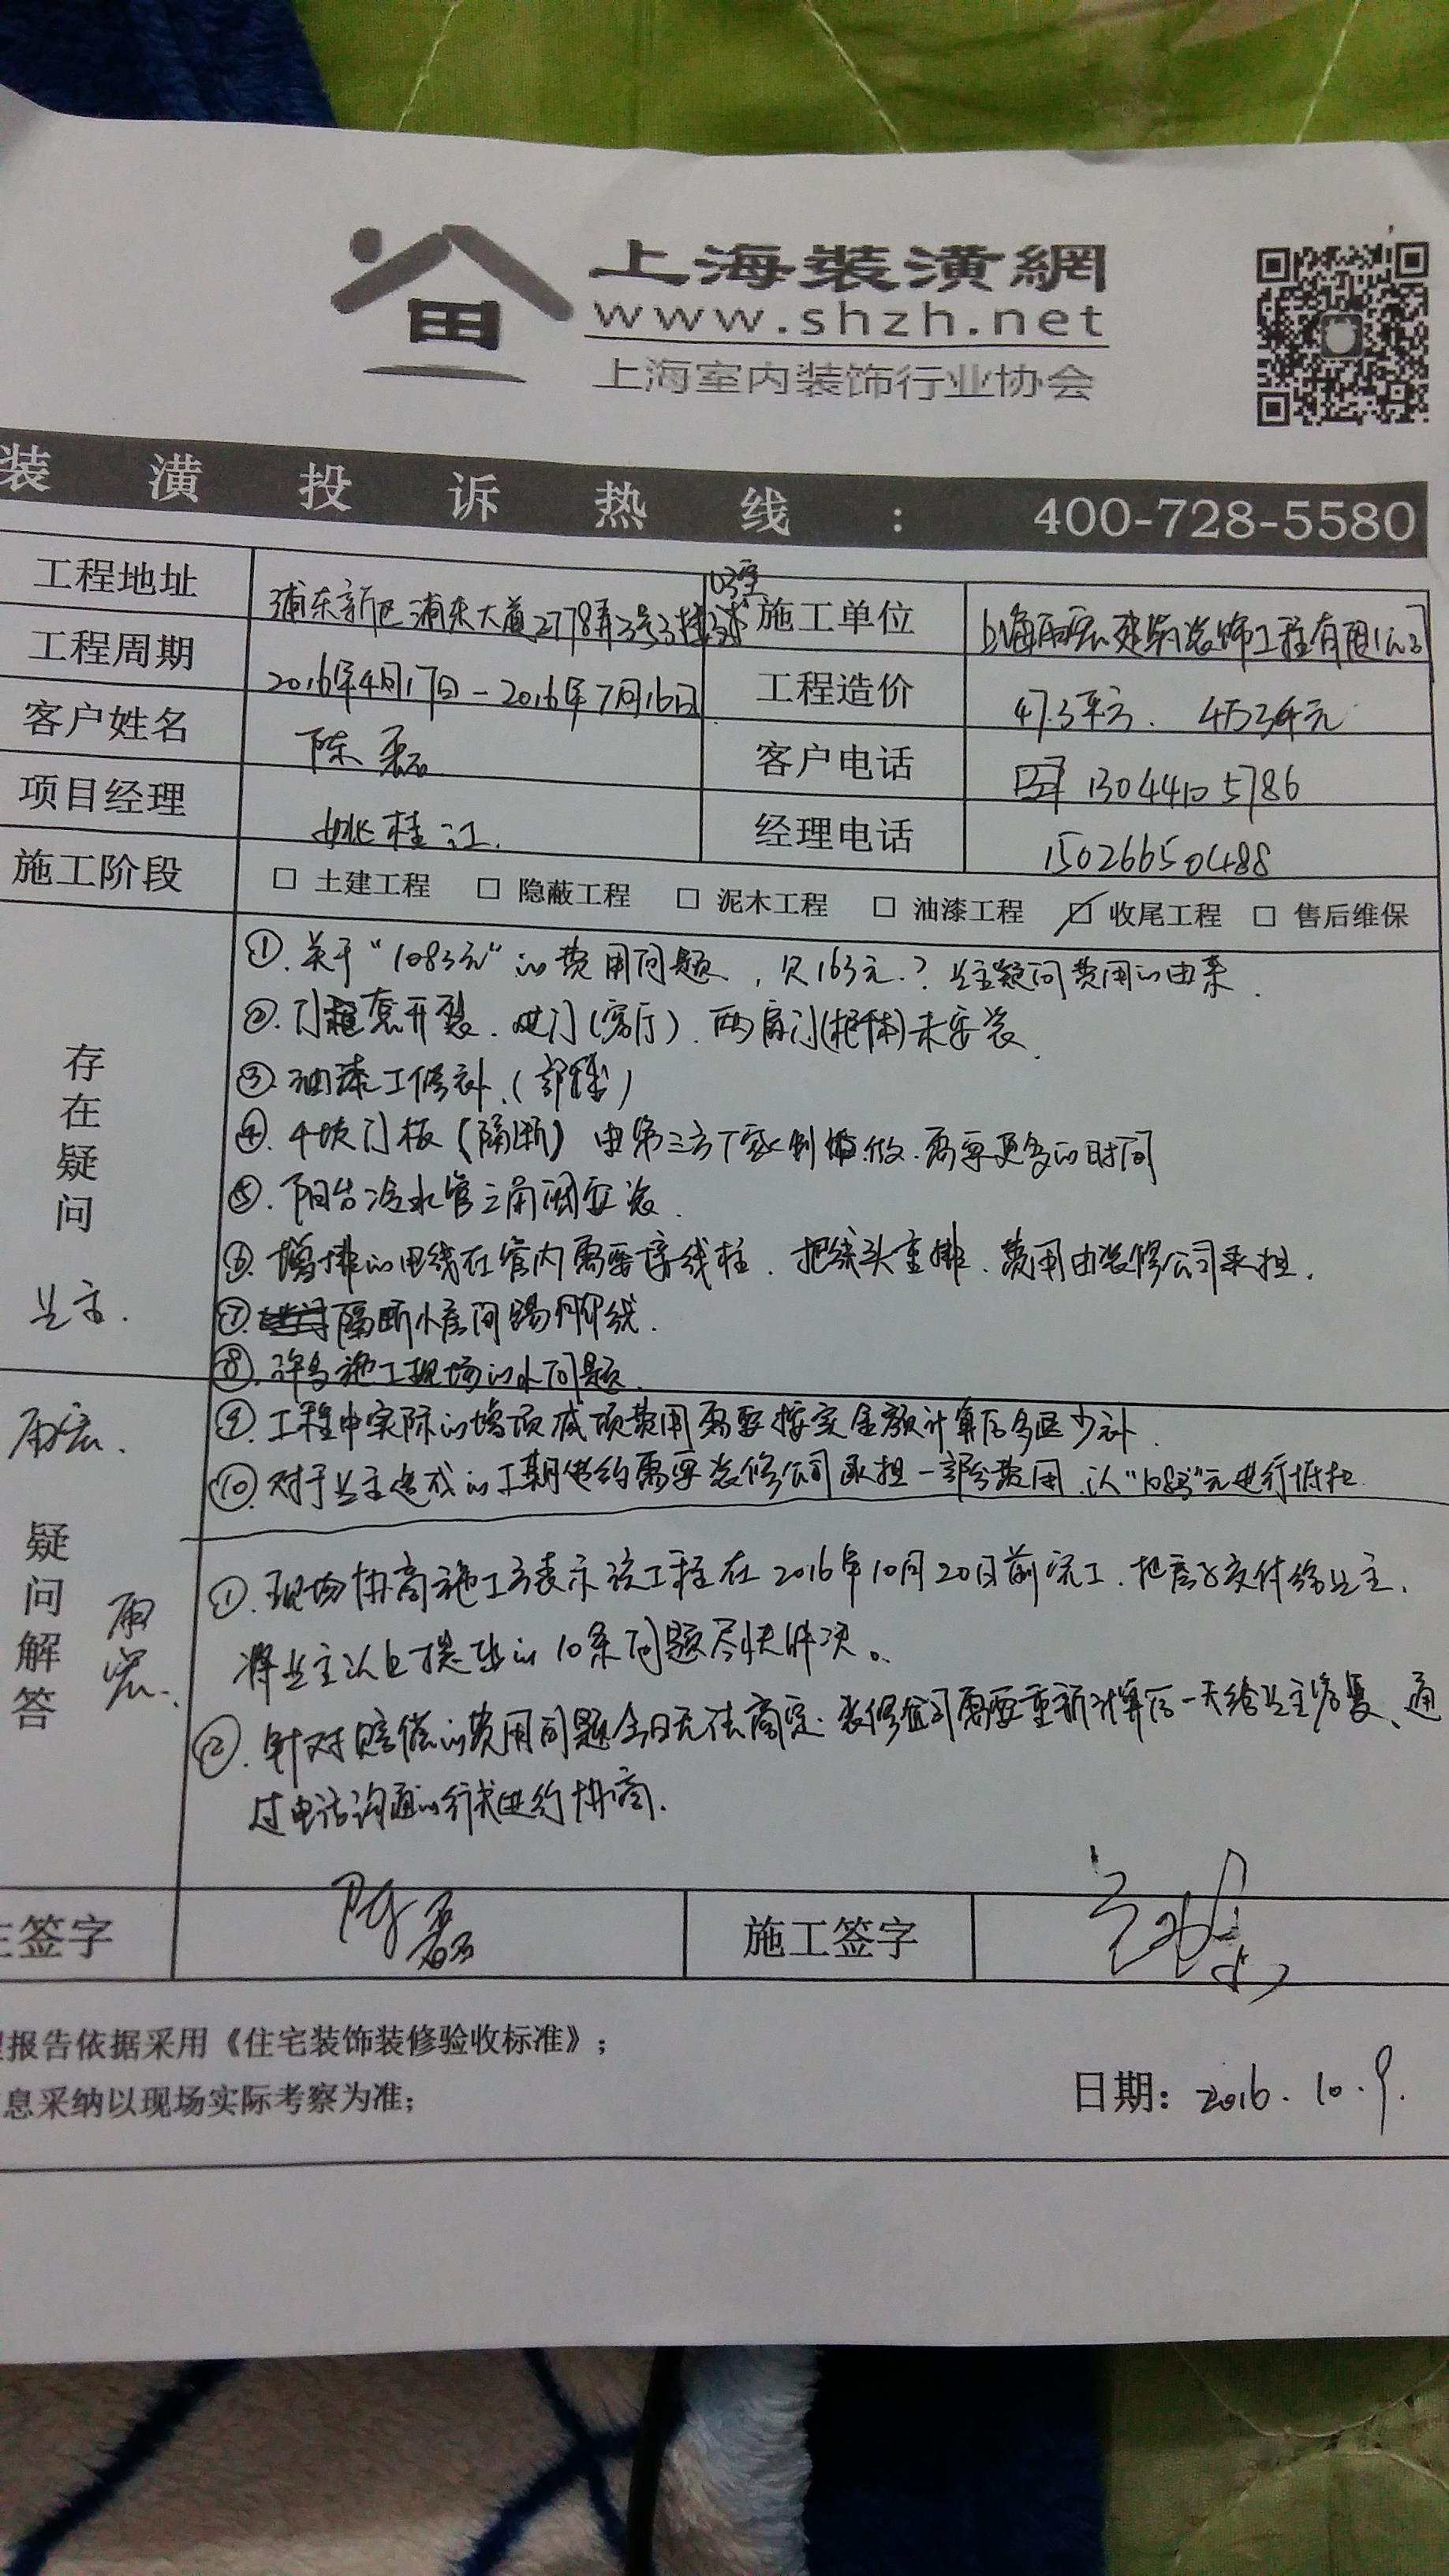 上海裝潢網
www.shzh.net
上海室内装饰行业协会
装潢投诉热线: 400-728-5580
工程地址 浦东新区浦东大道2778弄3号3楼 03室 施工单位 上海雨宏建筑装饰工程有限公司
工程周期 2016年4月17日-2016年7月16日 工程造价 47.3平方. 元
客户姓名 陈磊 客户电话 13044105786
项目经理 姚桂江. 经理电话 15026650488
施工阶段 □ 土建工程 □ 隐蔽工程 □ 泥木工程 □ 油漆工程 ☑ 收尾工程 □ 售后维保
存在疑问 业主.
①.关于"1083元"的费用问题,欠163元.?业主疑问费用的由来.
②.门框套开裂.移门(客厅).两扇门(柜体)未安装.
③.油漆工修补.(部分)
④.4块门板(隔断)由第三方厂家制做.需要更多的时间
⑤.阳台冷水管三角阀安装.
⑥.增排的电线在管内需要接线柱.把线头重排.费用由装修公司承担.
⑦.隔断小房间踢脚线.
⑧.许多施工现场的小问题.
雨宏.
⑨.工程中实际的增项减项费用需要按实金额计算后多退少补.
⑩.对于业主造成的工期违约需要装修公司承担一部分费用.以"1083"元进行抵扣.
疑问解答 雨宏.
①.现场协商施工方表示该工程在2016年10月20日前完工.把房子交付给业主.
将业主以上提出的10条问题尽快解决。
②.针对赔偿的费用问题今日无法商定.装修公司需要重新计算后一天给业主答复、通
过电话沟通的形式进行协商.
主签字 陈磊 施工签字
报告依据采用《住宅装饰装修验收标准》;
息采纳以现场实际考察为准;
日期: 2016.10.9.